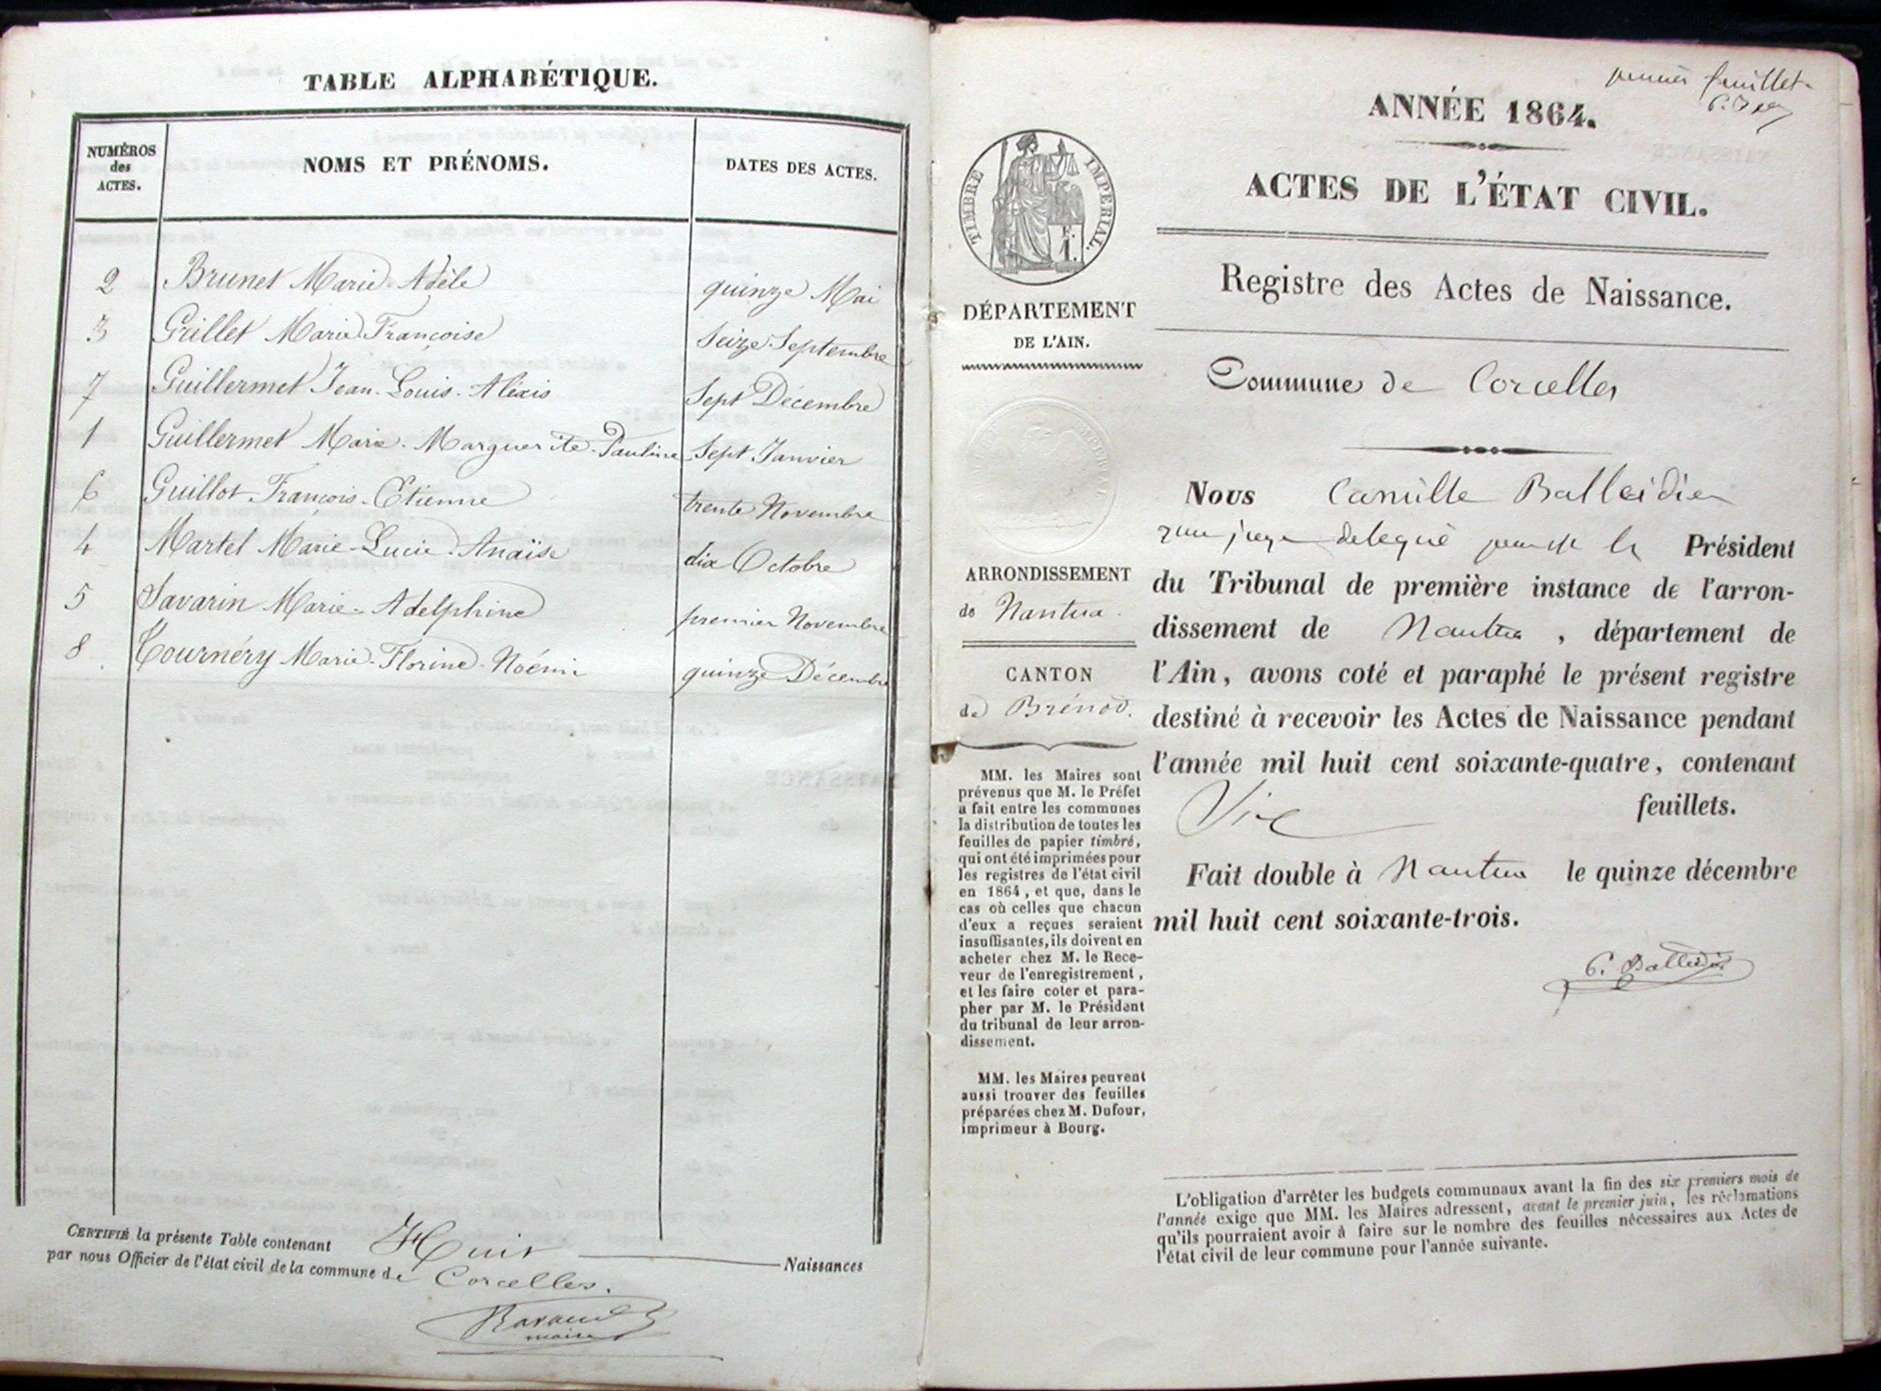 TABLE ALPHABÉTIQUE.
NUMÉROS des ACTES.
NOMS ET PRÉNOMS.
DATES DES ACTES.
2 Brunet Marie-Adèle quinze Mai
3 Grillet Marie-Françoise seize Septembre
7 Guillermet Jean-Louis-Aléxis Sept Décembre
1 Guillermet Marie-Marguerite-Pauline Sept Janvier
6 Guillot François-Etienne trente Novembre
4 Martel Marie-Lucie-Anaïse dix Octobre
5 Savarin Marie-Adelphine premier Novembre
8 Tournéry Marie-Florine-Noémi quinze Décembre
CERTIFIÉ la présente Table contenant Huit Naissances
par nous Officier de l'état civil de la commune de Corcelles.
maire
premier feuillet
ANNÉE 1864.
ACTES DE L'ÉTAT CIVIL.
Registre des Actes de Naissance.
Commune de Corcelles
TIMBRE IMPERIAL.
1 F.
DÉPARTEMENT
DE L'AIN.
ARRONDISSEMENT
de Nantua.
CANTON
de Brénod.
MM. les Maires sont
prévenus que M. le Préfet
a fait entre les communes
la distribution de toutes les
feuilles de papier timbré,
qui ont été imprimées pour
les registres de l'état civil
en 1864, et que, dans le
cas où celles que chacun
d'eux a reçues seraient
insuffisantes, ils doivent en
acheter chez M. le Rece-
veur de l'enregistrement,
et les faire coter et para-
pher par M. le Président
du tribunal de leur arron-
dissement.
MM. les Maires peuvent
aussi trouver des feuilles
préparées chez M. Dufour,
imprimeur à Bourg.
Nous Camille Balleidier
juge delegué par le Président
du Tribunal de première instance de l'arron-
dissement de Nantua, département de
l'Ain, avons coté et paraphé le présent registre
destiné à recevoir les Actes de Naissance pendant
l'année mil huit cent soixante-quatre, contenant
Six feuillets.
Fait double à Nantua le quinze décembre
mil huit cent soixante-trois.
C. Balleidier
L'obligation d'arrêter les budgets communaux avant la fin des six premiers mois de
l'année exige que MM. les Maires adressent, avant le premier juin, les réclamations
qu'ils pourraient avoir à faire sur le nombre des feuilles nécessaires aux Actes de
l'état civil de leur commune pour l'année suivante.